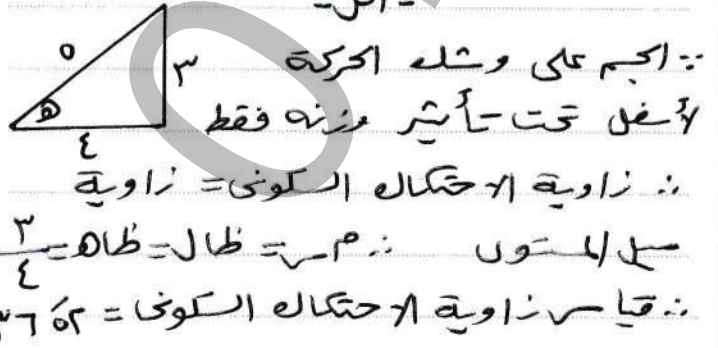 الحل
∵ الجسم على وشك الحركة
لأسفل تحت تأثير وزنه فقط
∴ زاوية الاحتكاك السكونى = زاوية
ميل المستوى ∴ م س = ظا ل = ظا ه = ٣/٤
∴ قياس زاوية الاحتكاك السكونى = ٥٢َ ٣٦
٥
٣
ه
٤